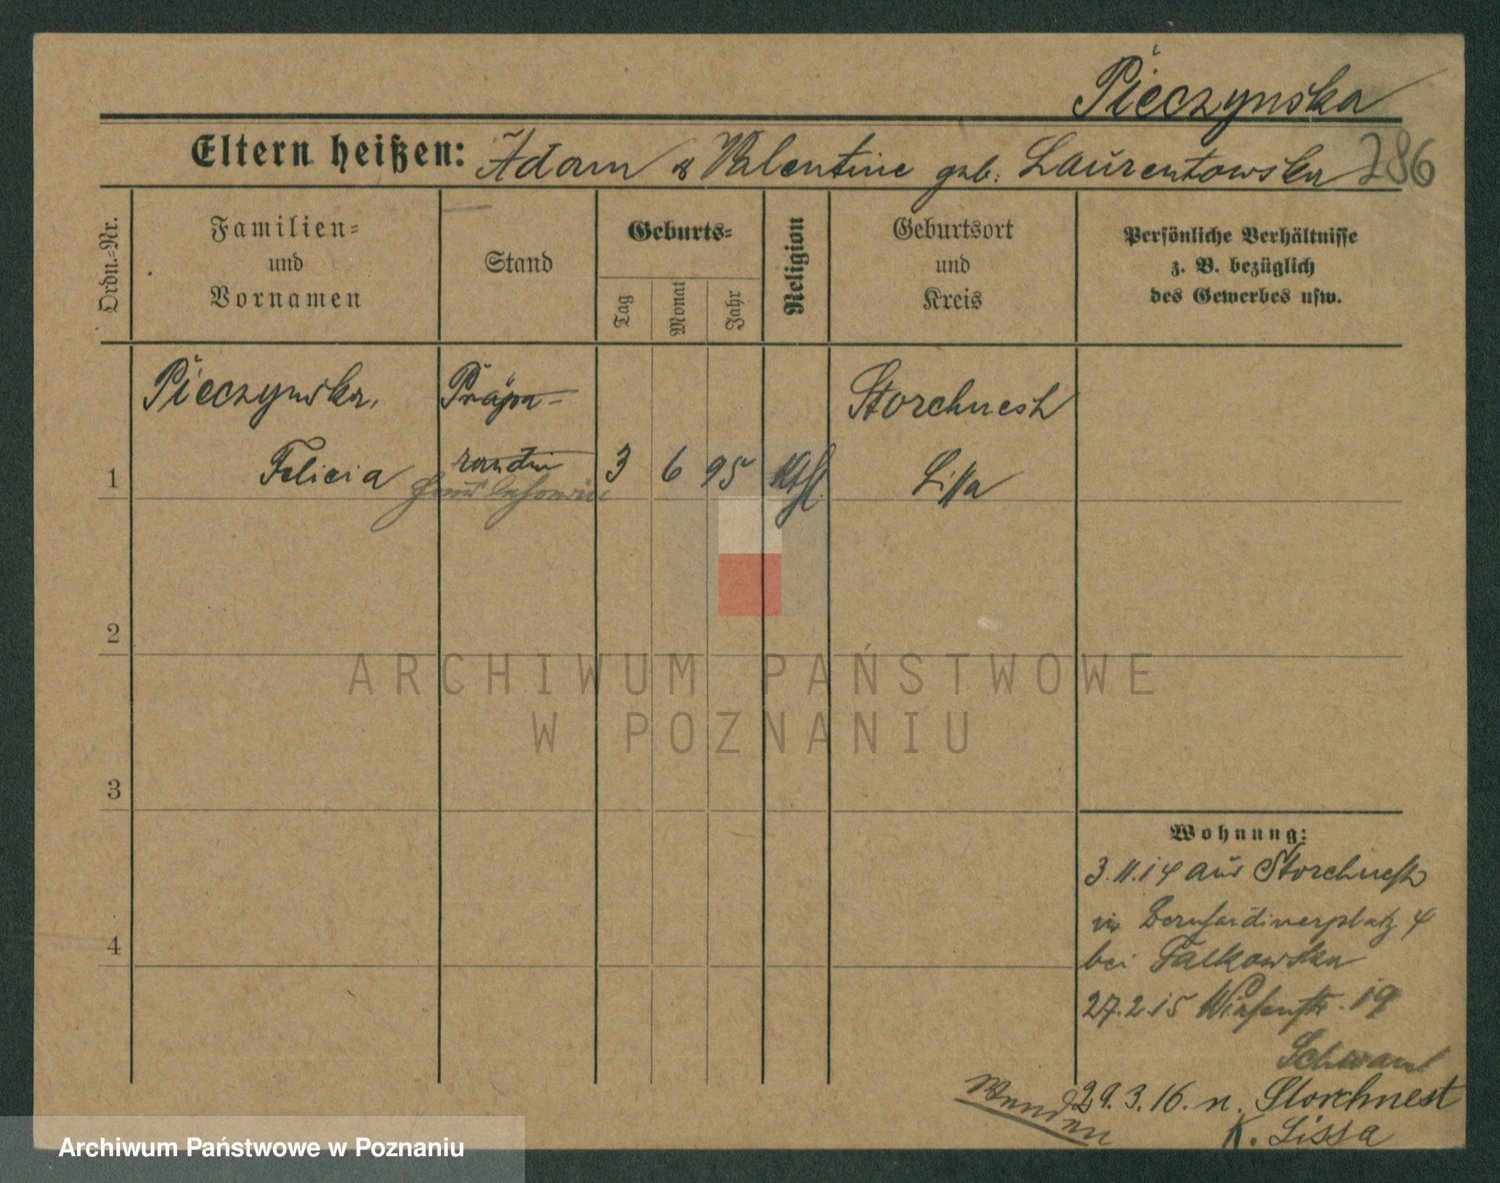 Pieczynska
Eltern heißen: Adam & Valentine geb. Laurentowska 786
Ordn.-Nr.
Familien-
und
Vornamen
Stand
Geburts-
Tag
Monat
Jahr
Religion
Geburtsort
und
Kreis
Persönliche Verhältnisse
z. B. bezüglich
des Gewerbes usw.
Pieczynska, Präpa- Storchnest
1 Felicia randin 3 6 95 kthl Lissa
2
ARCHIWUM PAŃSTWOWE
W POZNANIU
3
Wohnung:
3.11.14 aus Storchnest
in Bernardinerplatz 4
4
bei Falkowska
27.2.15 Wiesenstr. 19
Wenden
29.3.16. n. Storchnest
K. Lissa
Archiwum Państwowe w Poznaniu